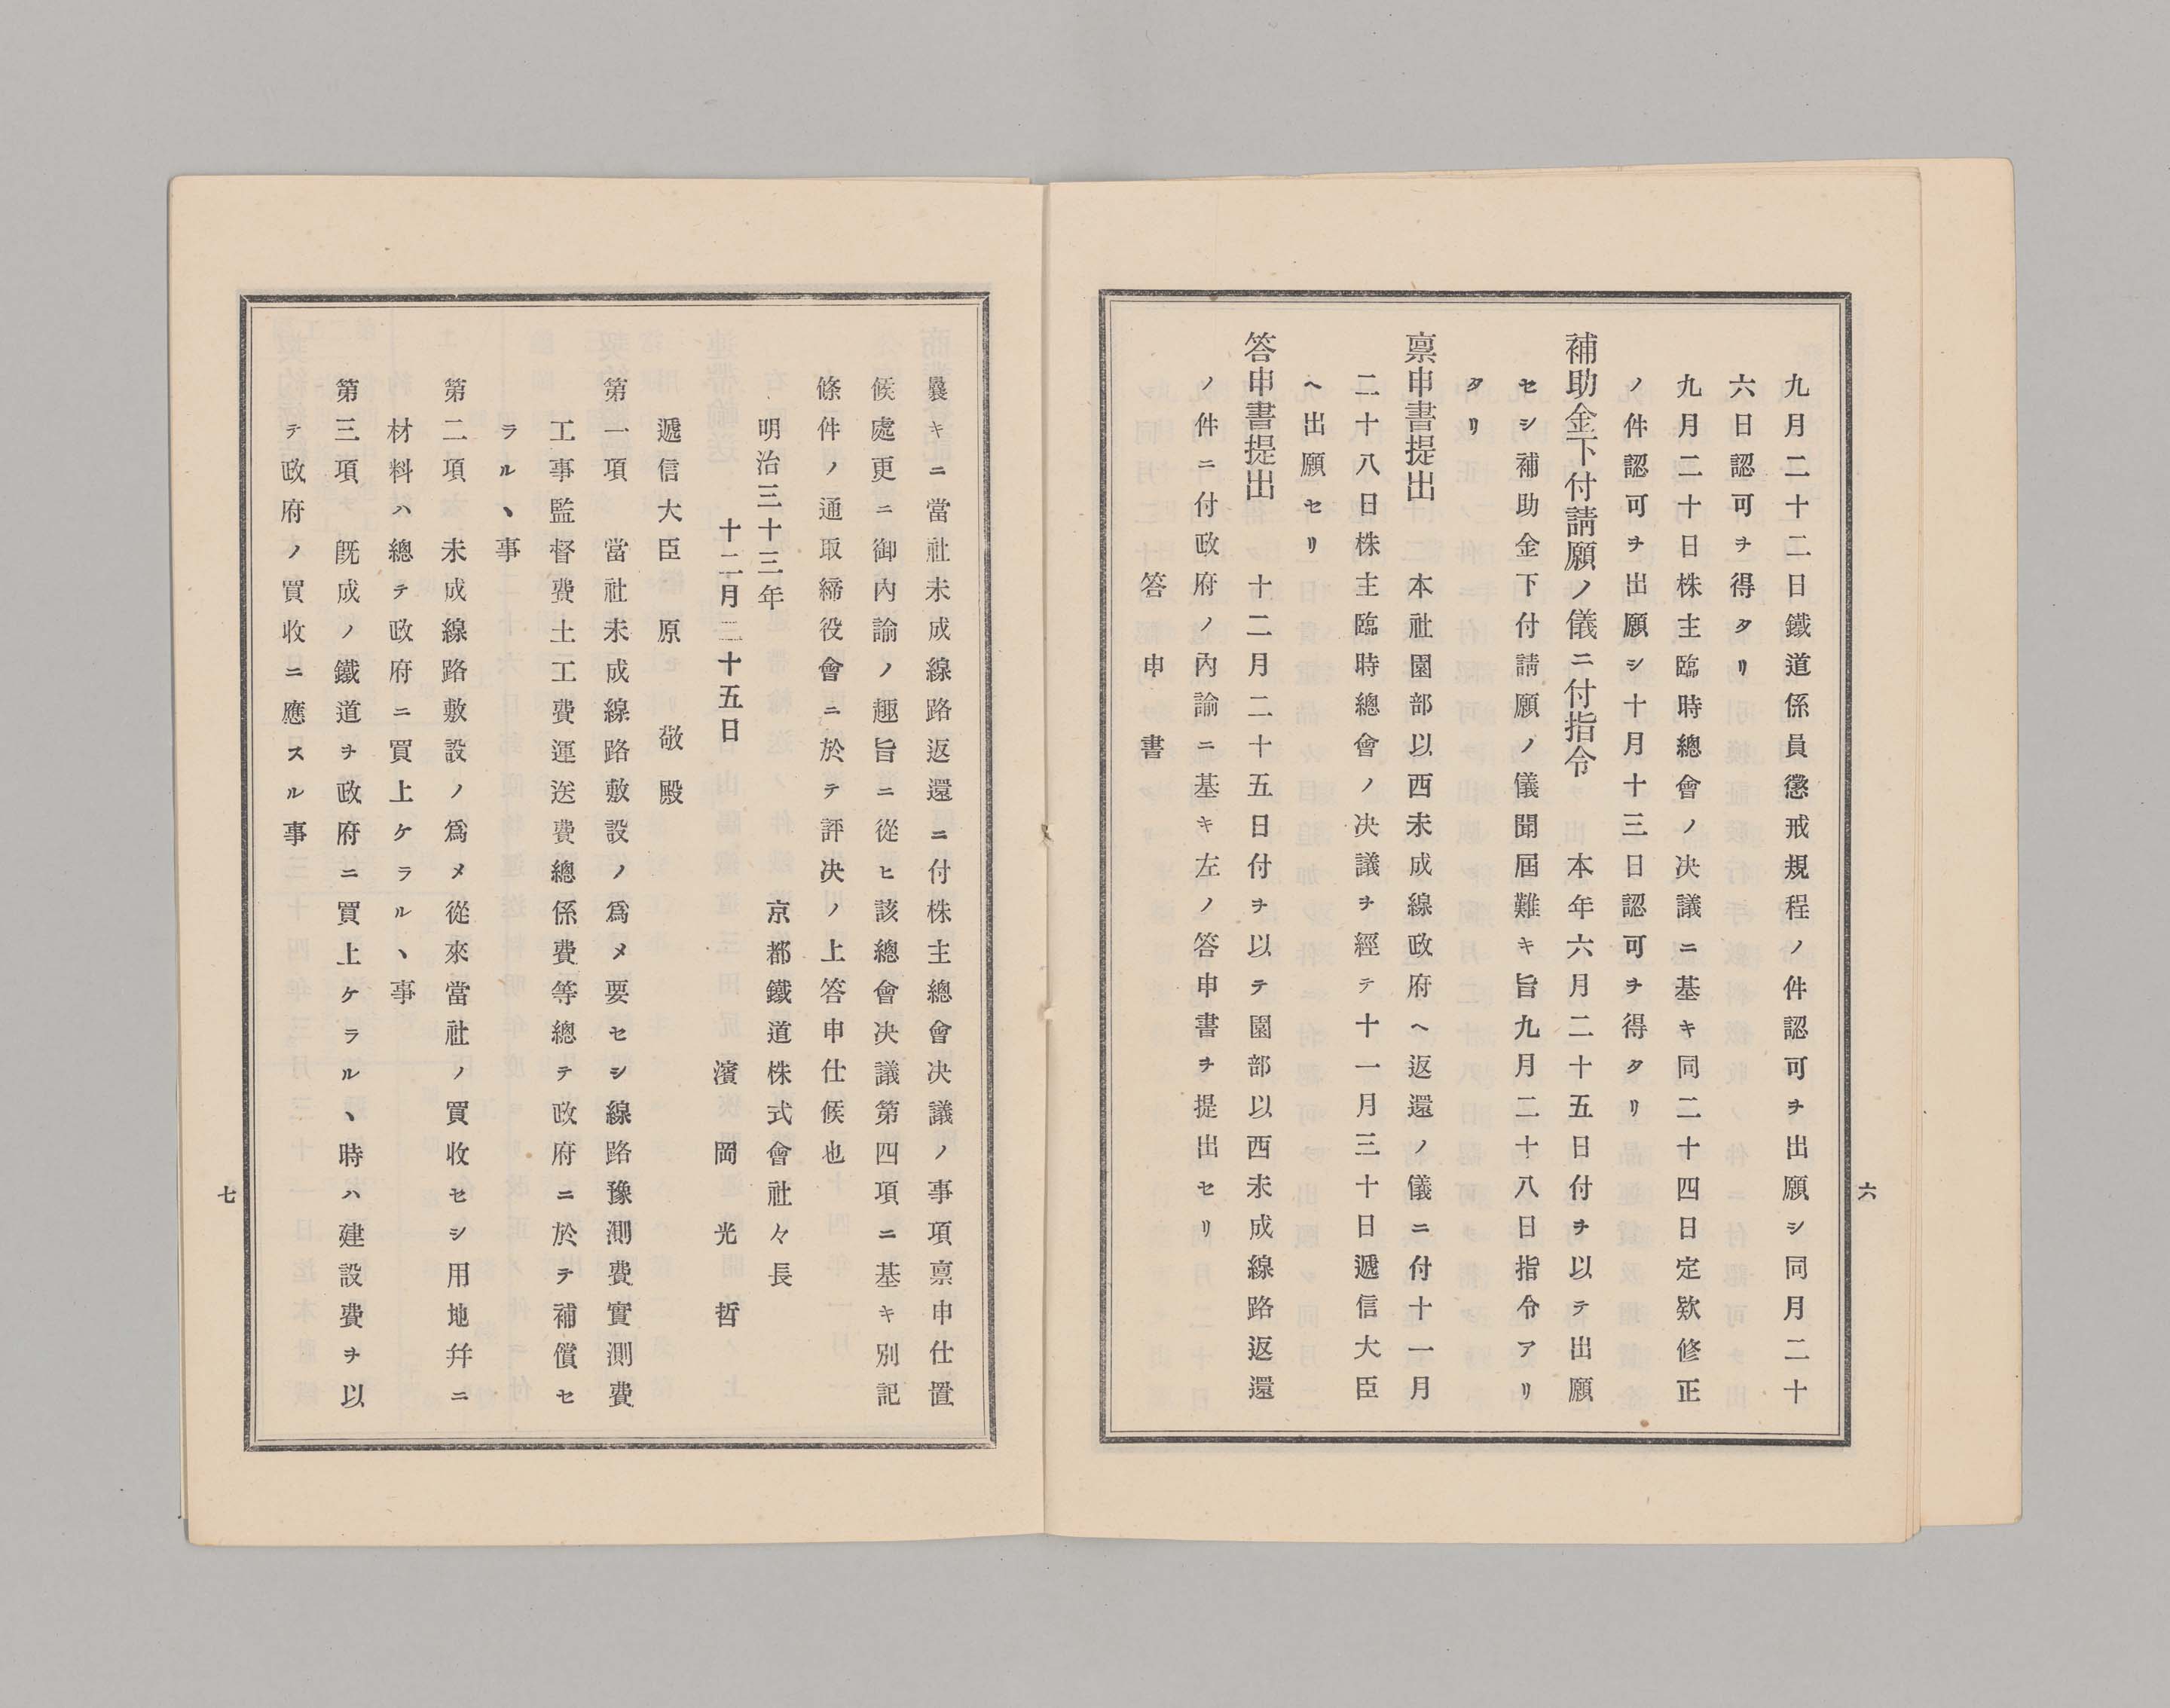 九月二十二日鐵道係員懲戒規程ノ件認可ヲ出願シ同月二十
六日認可ヲ得タリ
九月二十日株主臨時總會ノ决議ニ基キ同二十四日定欵修正
ノ件認可ヲ出願シ十月十三日認可ヲ得タリ
補助金下付請願ノ儀ニ付指令 本年六月二十五日付ヲ以テ出願
セシ補助金下付請願ノ儀聞屆難キ旨九月二十八日指令アリ
タリ
禀申書提出 本社園部以西未成線政府ヘ返還ノ儀ニ付十一月
二十八日株主臨時總會ノ决議ヲ經テ十一月三十日遞信大臣
ヘ出願セリ
答申書提出 十二月二十五日付ヲ以テ園部以西未成線路返還
ノ件ニ付政府ノ內諭ニ基キ左ノ答申書ヲ提出セリ
答申書
六
曩キニ當社未成線路返還ニ付株主總會决議ノ事項禀申仕置
候處更ニ御內諭ノ趣旨ニ從ヒ該總會决議第四項ニ基キ別記
條件ノ通取締役會ニ於テ評决ノ上答申仕候也
明治三十三年 京都鐵道株式會社々長
十二月二十五日 濱岡光哲
遞信大臣 原敬殿
第一項 當社未成線路敷設ノ爲メ要セシ線路豫測費實測費
工事監督費土工費運送費總係費等總テ政府ニ於テ補償セ
ラルヽ事
第二項 未成線路敷設ノ爲メ從來當社ノ買收セシ用地幷ニ
材料ハ總テ政府ニ買上ケラルヽ事
第三項 旣成ノ鐵道ヲ政府ニ買上ケラルヽ時ハ建設費ヲ以
テ政府ノ買收ニ應スル事
七